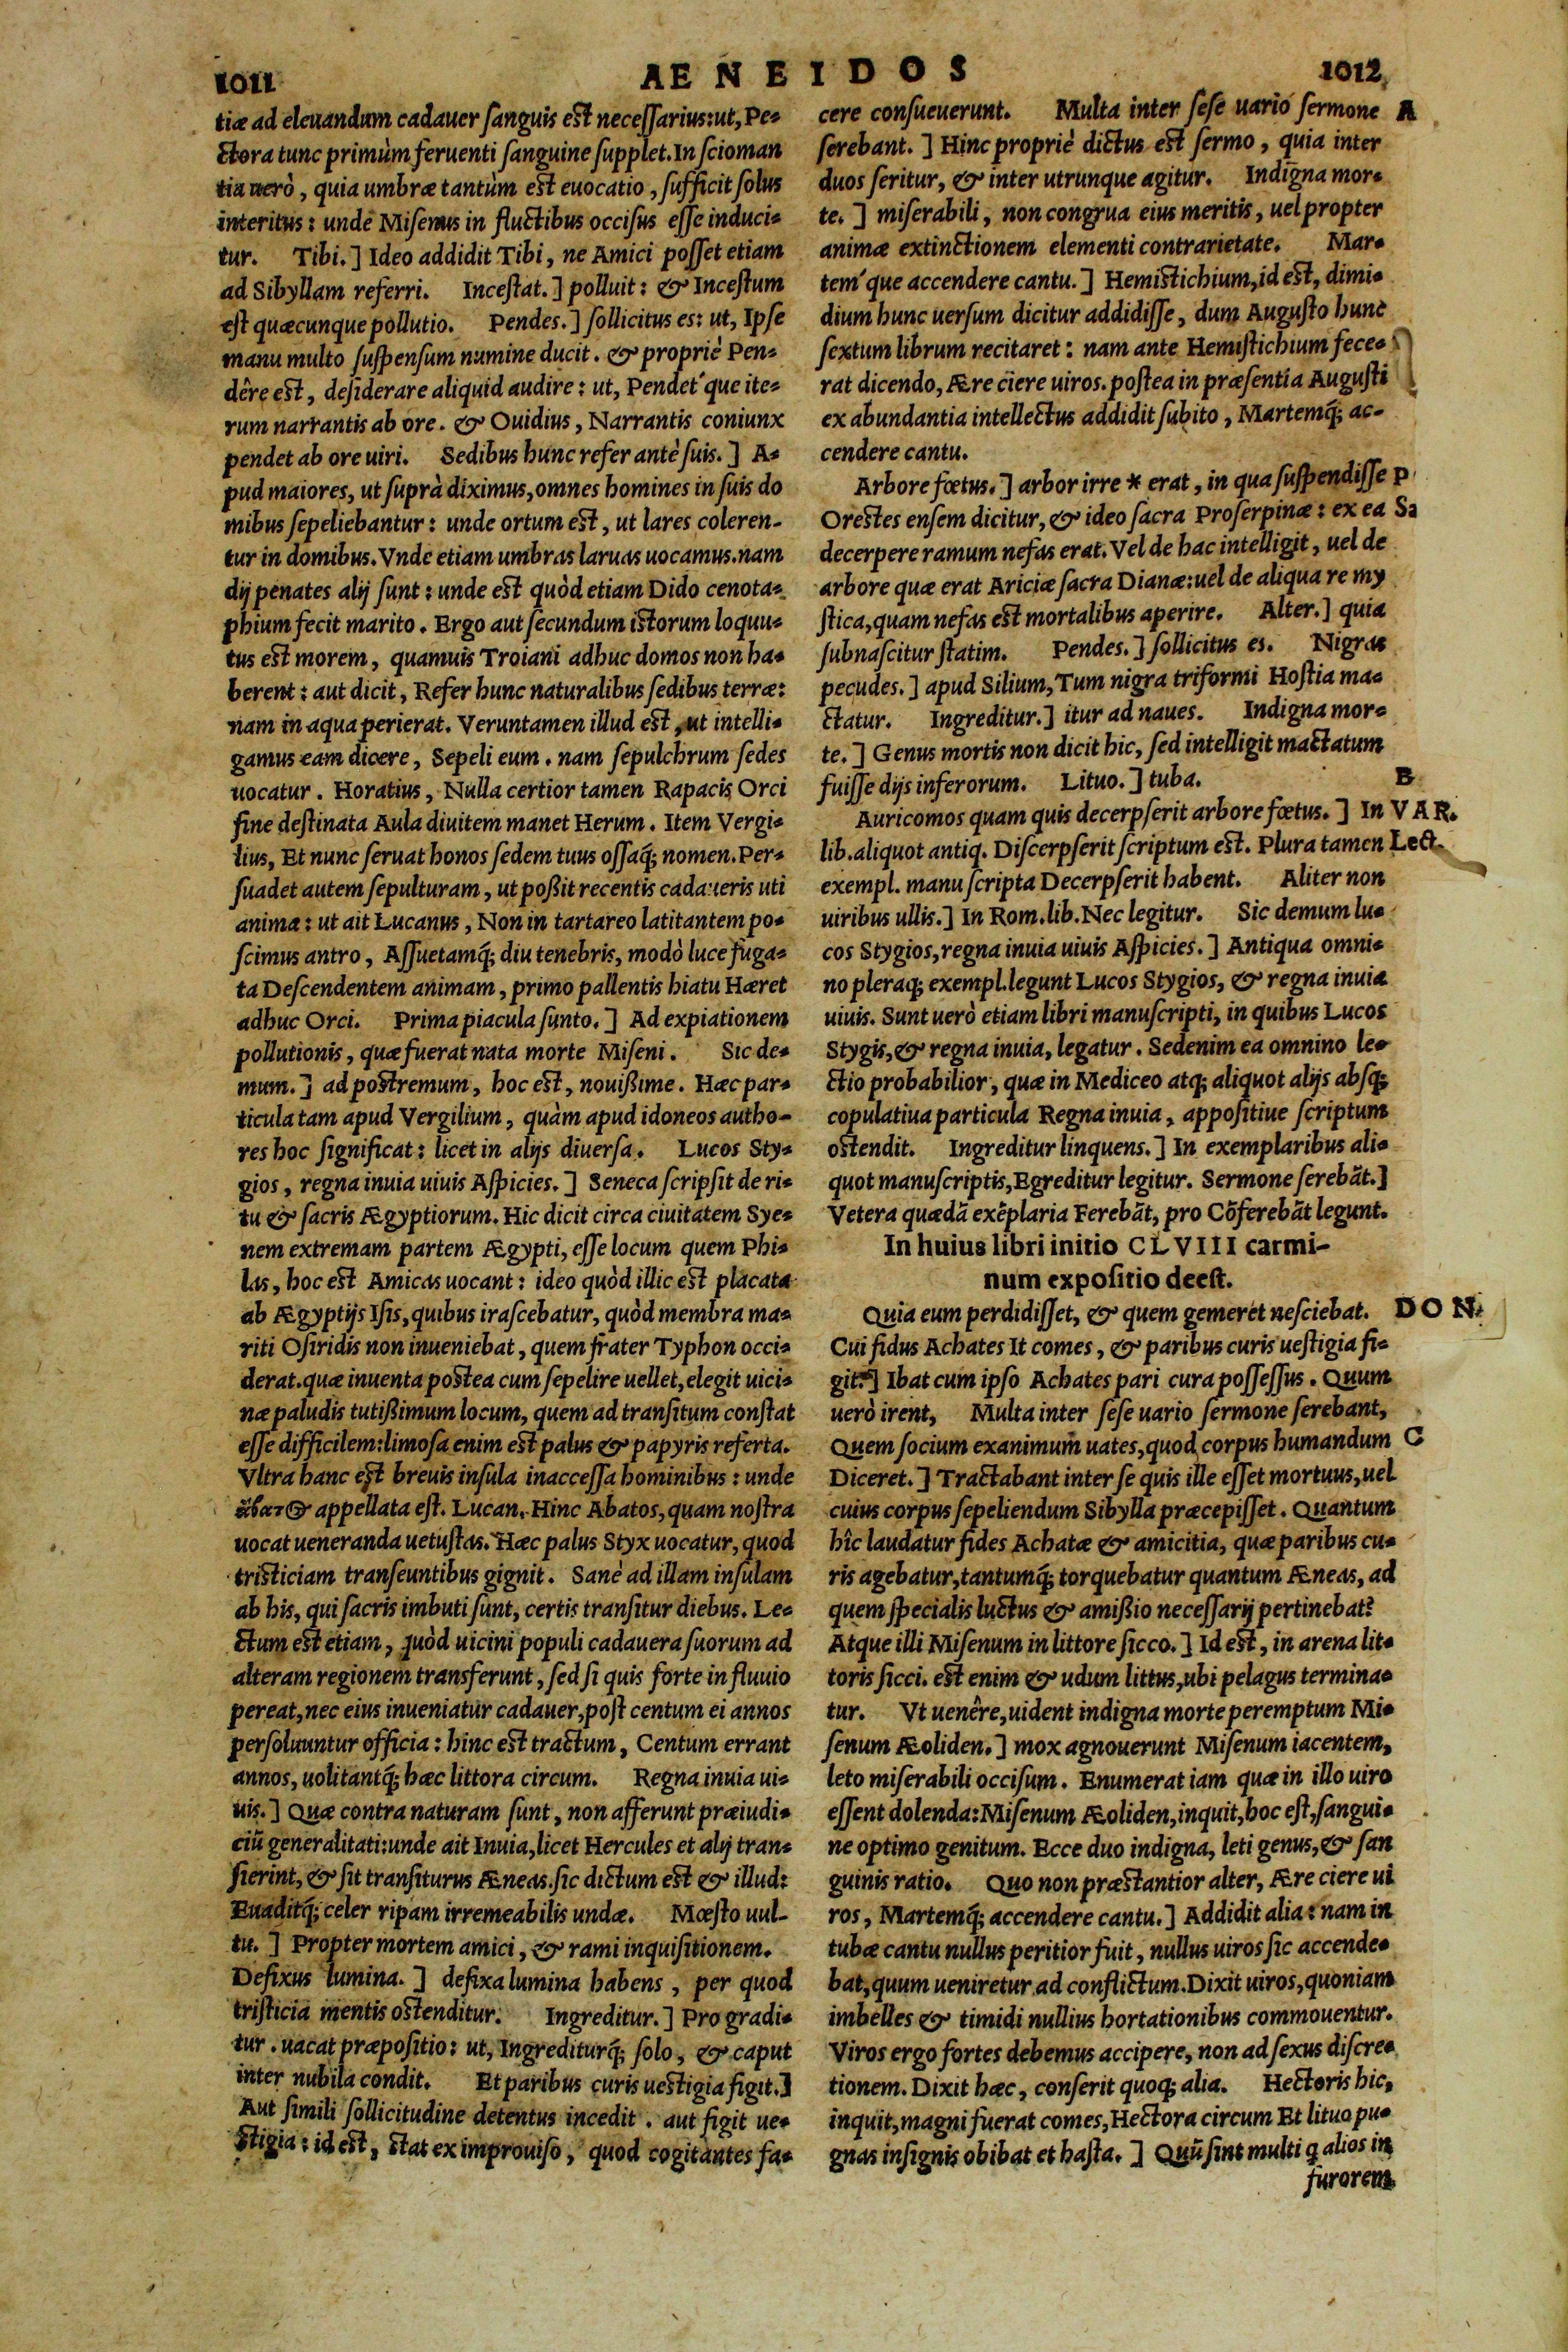 1011
AENEIDOS
1012
tiæ ad eleuandum cadauer ſanguis eſt neceſſarius:ut, Pe-
ctora tunc primùm feruenti ſanguine ſupplet. In ſcioman
tia uerò, quia umbræ tantùm eſt euocatio, ſufficit ſolus
interitus: unde Miſenus in fluctibus occiſus eſſe induci-
tur. Tibi.] Ideo addidit Tibi, ne Amici poſſet etiam
ad Sibyllam referri. Inceſtat.] polluit: & Inceſtum
eſt quæcunque pollutio. Pendes.] ſollicitus es: ut, Ipſe
manu multo ſuſpenſum numine ducit. & propriè Pen-
dêre eſt, deſiderare aliquid audire: ut, Pendet´que ite-
rum narrantis ab ore. & Ouidius, Narrantis coniunx
pendet ab ore uiri. Sedibus hunc refer antè ſuis.] A-
pud maiores, ut ſuprà diximus, omnes homines in ſuis do
mibus ſepeliebantur: unde ortum eſt, ut lares coleren-
tur in domibus. Vnde etiam umbras laruas uocamus. nam
dij penates alij ſunt: unde eſt quòd etiam Dido cenota-
phium fecit marito. Ergo aut ſecundum iſtorum loquu-
tus eſt morem, quamuis Troiani adhuc domos non ha-
berent: aut dicit, Refer hunc naturalibus ſedibus terræ:
nam in aqua perierat. Veruntamen illud eſt, ut intelli-
gamus eam dicere, Sepeli eum. nam ſepulchrum ſedes
uocatur. Horatius, Nulla certior tamen Rapacis Orci
fine deſtinata Aula diuitem manet Herum. Item Vergi-
lius, Et nunc ſeruat honos ſedem tuus oſſaq́; nomen. Per-
ſuadet autem ſepulturam, ut poßit recentis cadaueris uti
anima: ut ait Lucanus, Non in tartareo latitantem po-
ſcimus antro, Aſſuetamq́; diu tenebris, modò luce fuga-
ta Deſcendentem animam, primo pallentis hiatu Hæret
adhuc Orci. Prima piacula ſunto.] Ad expiationem
pollutionis, quæ fuerat nata morte Miſeni. Sic de-
mum.] ad poſtremum, hoc eſt, nouißime. Hæc par-
ticula tam apud Vergilium, quàm apud idoneos autho-
res hoc ſignificat: licet in alijs diuerſa. Lucos Sty-
gios, regna inuia uiuis Aſpicies.] Seneca ſcripſit de ri-
tu & ſacris Ægyptiorum. Hic dicit circa ciuitatem Sye-
nem extremam partem Ægypti, eſſe locum quem Phi-
las, hoc eſt Amicas uocant: ideo quòd illic eſt placata
ab Ægyptijs Iſis, quibus iraſcebatur, quòd membra ma-
riti Oſiridis non inueniebat, quem frater Typhon occi-
derat. quæ inuenta poſtea cum ſepelire uellet, elegit uici-
næ paludis tutißimum locum, quem ad tranſitum conſtat
eſſe difficilem: limoſa enim eſt palus & papyris referta.
Vltra hanc eſt breuis inſula inacceſſa hominibus: unde
ἄβατος appellata eſt. Lucan. Hinc Abatos, quam noſtra
uocat ueneranda uetuſtas. Hæc palus Styx uocatur, quod
triſticiam tranſeuntibus gignit. Sanè ad illam inſulam
ab his, qui ſacris imbuti ſunt, certis tranſitur diebus. Le-
ctum eſt etiam, quòd uicini populi cadauera ſuorum ad
alteram regionem transferunt, ſed ſi quis forte in fluuio
pereat, nec eius inueniatur cadauer, poſt centum ei annos
perſoluuntur officia: hinc eſt tractum, Centum errant
annos, uolitantq́; hæc littora circum. Regna inuia ui-
uis.] Quæ contra naturam ſunt, non afferunt præiudi-
ciũ generalitati: unde ait Inuia, licet Hercules et alij tran-
ſierint, & ſit tranſiturus Æneas. ſic dictum eſt & illud:
Euaditq́; celer ripam irremeabilis undæ. Mœſto uul-
tu.] Propter mortem amici, & rami inquiſitionem.
Defixus lumina.] defixa lumina habens, per quod
triſticia mentis oſtenditur. Ingreditur.] Pro gradi-
tur. uacat præpoſitio: ut, Ingrediturq́; ſolo, & caput
inter nubila condit. Et paribus curis ueſtigia figit.]
Aut ſimili ſollicitudine detentus incedit. aut figit ue-
ſtigia: id eſt, ſtat ex improuiſo, quod cogitantes fa-
cere conſueuerunt. Multa inter ſeſe uario ſermone A
ſerebant.] Hinc propriè dictus eſt ſermo, quia inter
duos ſeritur, & inter utrunque agitur. Indigna mor-
te.] miſerabili, non congrua eius meritis, uel propter
animæ extinctionem elementi contrarietate. Mar-
tem´que accendere cantu.] Hemiſtichium, id eſt, dimi-
dium hunc uerſum dicitur addidiſſe, dum Auguſto hunc
ſextum librum recitaret: nam ante Hemiſtichium fece-
rat dicendo, Ære ciere uiros. poſtea in præſentia Auguſti
ex abundantia intellectus addidit ſubito, Martemq́; ac-
cendere cantu.
Arbore fœtus.] arbor irre * erat, in qua ſuſpendiſſe P
Oreſtes enſem dicitur, & ideo ſacra Proſerpinæ: ex ea Sa
decerpere ramum nefas erat. Vel de hac intelligit, uel de
arbore quæ erat Ariciæ ſacra Dianæ: uel de aliqua re my
ſtica, quam nefas eſt mortalibus aperire. Alter.] quia
ſubnaſcitur ſtatim. Pendes.] ſollicitus es. Nigras
pecudes.] apud Silium, Tum nigra triformi Hoſtia ma-
ctatur. Ingreditur.] itur ad naues. Indigna mor-
te.] Genus mortis non dicit hic, ſed intelligit mactatum
fuiſſe dijs inferorum. Lituo.] tuba. B
Auricomos quam quis decerpſerit arbore fœtus.] In VAR.
lib. aliquot antiq. Diſcerpſerit ſcriptum eſt. Plura tamen Lect.
exempl. manu ſcripta Decerpſerit habent. Aliter non
uiribus ullis.] In Rom. lib. Nec legitur. Sic demum lu-
cos Stygios, regna inuia uiuis Aſpicies.] Antiqua omni-
no pleraq; exempl. legunt Lucos Stygios, & regna inuia
uiuis. Sunt uerò etiam libri manuſcripti, in quibus Lucos
Stygis, & regna inuia, legatur. Sedenim ea omnino le-
ctio probabilior, quæ in Mediceo atq; aliquot alijs abſq;
copulatiua particula Regna inuia, appoſitiue ſcriptum
oſtendit. Ingreditur linquens.] In exemplaribus ali-
quot manuſcriptis, Egreditur legitur. Sermone ſerebãt.]
Vetera quædã exẽplaria Ferebãt, pro Cõferebãt legunt.
In huius libri initio CLVIII carmi-
num expoſitio deeſt.
Quia eum perdidiſſet, & quem gemeret neſciebat. DON.
Cui fidus Achates It comes, & paribus curis ueſtigia fi-
git.] Ibat cum ipſo Achates pari cura poſſeſſus. Quum
uerò irent, Multa inter ſeſe uario ſermone ſerebant,
Quem ſocium exanimum uates, quod corpus humandum C
Diceret.] Tractabant inter ſe quis ille eſſet mortuus, uel
cuius corpus ſepeliendum Sibylla præcepiſſet. Quantum
hîc laudatur fides Achatæ & amicitia, quæ paribus cu-
ris agebatur, tantumq́; torquebatur quantum Æneas, ad
quem ſpecialis luctus & amißio neceſſarij pertinebat?
Atque illi Miſenum in littore ſicco.] Id eſt, in arena lit-
toris ſicci. eſt enim & udum littus, ubi pelagus termina-
tur. Vt uenêre, uident indigna morte peremptum Mi-
ſenum Æoliden.] mox agnouerunt Miſenum iacentem,
leto miſerabili occiſum. Enumerat iam quæ in illo uiro
eſſent dolenda: Miſenum Æoliden, inquit, hoc eſt, ſangui-
ne optimo genitum. Ecce duo indigna, leti genus, & ſan
guinis ratio. Quo non præſtantior alter, Ære ciere ui
ros, Martemq́; accendere cantu.] Addidit alia: nam in
tubæ cantu nullus peritior fuit, nullus uiros ſic accende-
bat, quum ueniretur ad conflictum. Dixit uiros, quoniam
imbelles & timidi nullius hortationibus commouentur.
Viros ergo fortes debemus accipere, non ad ſexus diſcre-
tionem. Dixit hæc, conſerit quoq; alia. Hectoris hic,
inquit, magni fuerat comes, Hectora circum Et lituo pu-
gnas inſignis obibat et haſta.] Quũ ſint multi q̃ alios in
furorem